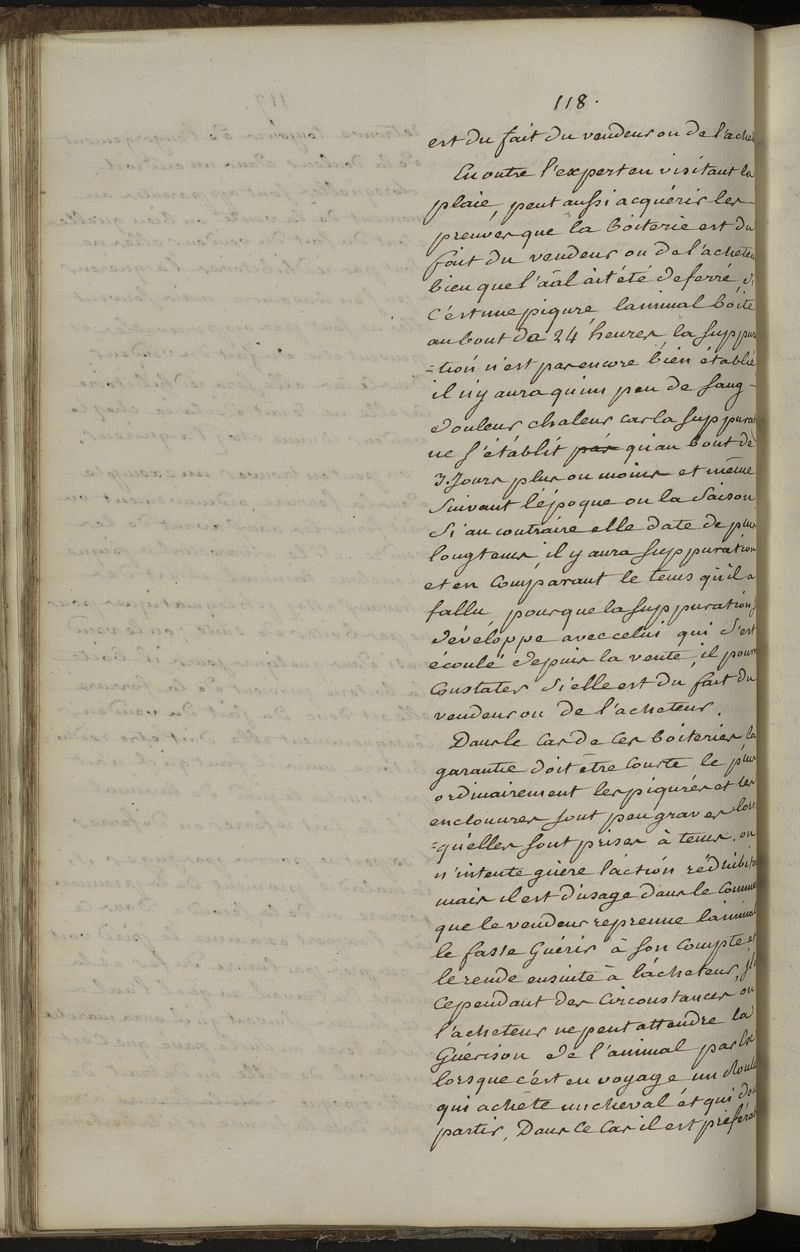 118.
est du fait du vendeur ou de l'ache
En outre l'expert en visitant la
plaie, peut aussi acquérir les
preuves que la boiterie est du
fait du vendeur ou de l'acheteu
bien que l'aâl ait été deferré, si
C'est une piqure lanimal boite
au bout da 24 heures la suppur
=tion n'est pas encore bien établie
il n'y aura qu'un peu de sang
douleur chaleur car la suppurat
ne s'établit pas qu'au bout de
3. Jours plus ou moins et même
Suivant l'époque ou la Saison
Si au contraire elle date de plus
longtems il y aura suppuration
et en Comparant le tems qu'il a
fallu pour que la suppuration s
développe avec celui qui s'est
écoulé depuis la vente, il pourr
Constater Si elle est du fait du
vendeur ou de l'acheteur.
Dans le Cas de Ces boiteries la
garantie doit être Courte le plus
ordinairement les piqures et les
enclouures sont peu graves lors
=qu'elles sont prises à tems. on
n'intente guère l'action rédhibit
mais il est d'usage dans le Comme
que le vendeur reprenne lanimal
le fasse Guérir à son Compte et
le rende ensuite à l'acheteur,
Cependant des Circonstances où
l'acheteur ne peut attendre la
Guérison de l'animal par
lorsque c'est en voyage un Roul
qui achète un cheval et qui doi
partir, Dans Ce Cas il est préféra